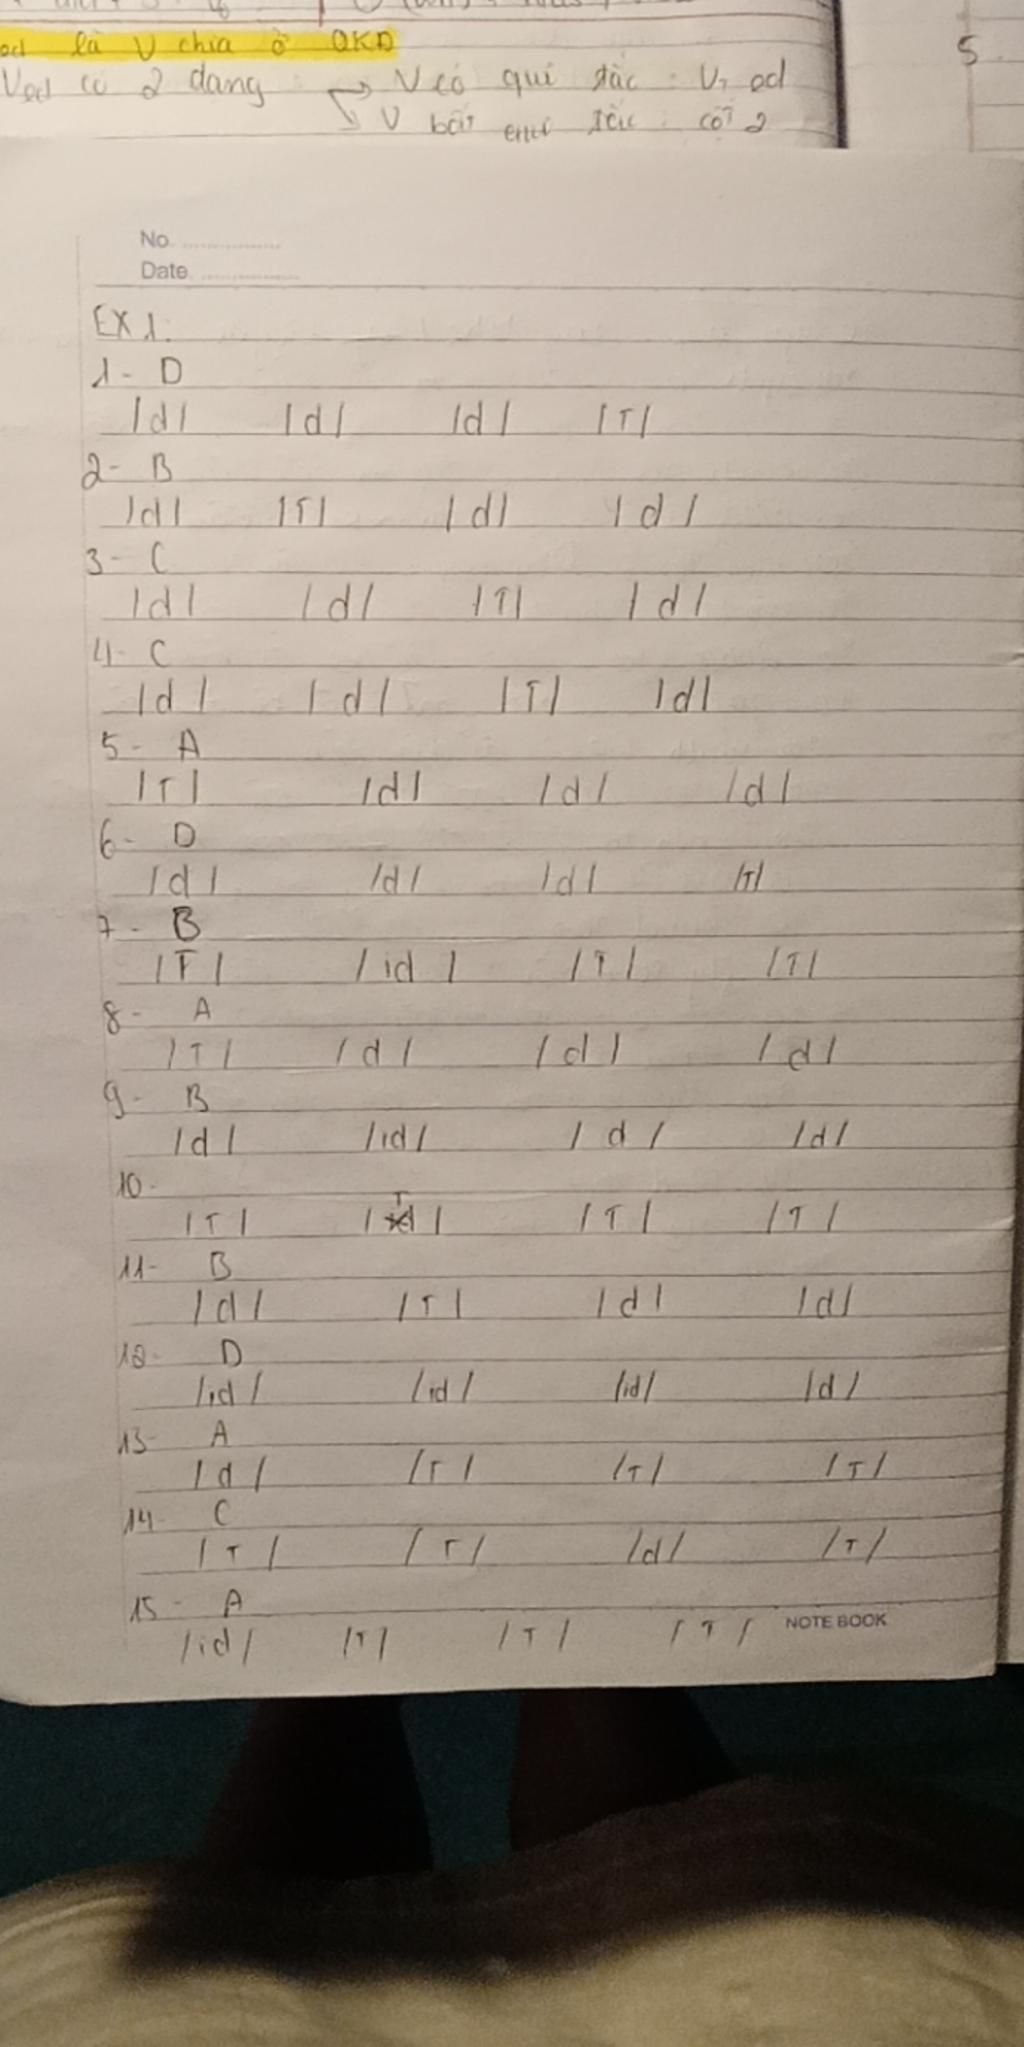 là V chia ở QKĐ
5.
Ved có 2 dạng → V có qui tắc: V, ed
↘ V bất tắc: cột 2
No.
Date
EX 1.
1- D
/d/ /d/ /d/ /T/
2- B
/d/ /T/ /d/ /d/
3- C
/d/ /d/ /T/ /d/
4- C
/d/ /d/ /T/ /d/
5- A
/T/ /d/ /d/ /d/
6- D
/d/ /d/ /d/ /T/
7- B
/T/ /id/ /T/ /T/
8- A
/T/ /d/ /d/ /d/
9- B
/d/ /id/ /d/ /d/
10-
/T/ /T/ /T/ /T/
11- B
/d/ /T/ /d/ /d/
12- D
/id/ /id/ /id/ /d/
13- A
/d/ /T/ /T/ /T/
14- C
/T/ /T/ /d/ /T/
15- A
/id/ /T/ /T/ /T/
NOTE BOOK